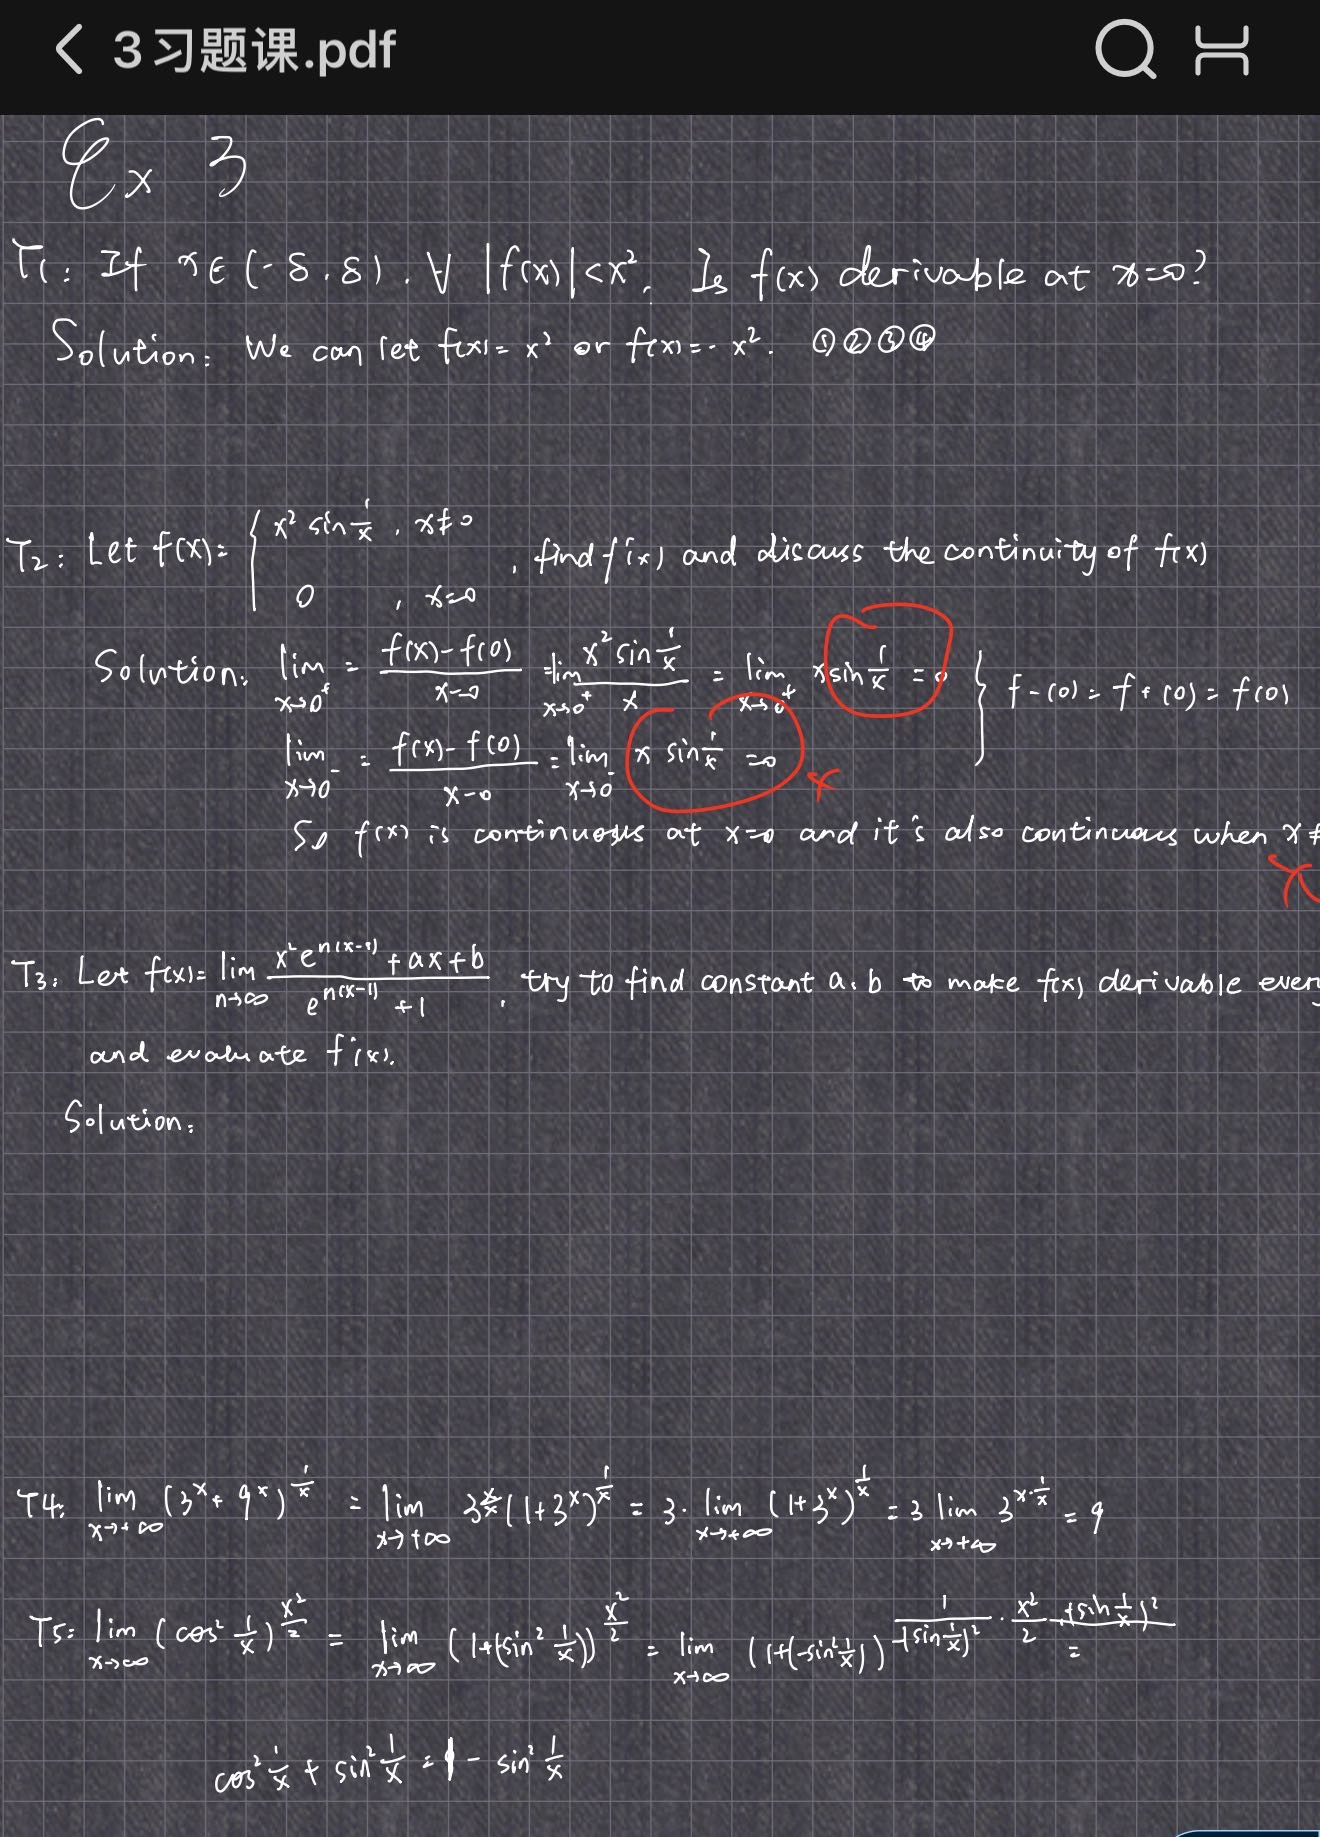 3习题课.pdf
Ex 3
T1: If x∈(-δ.δ). ∀ |f(x)|<x². Is f(x) derivable at x=0?
Solution: We can let f(x)= x² or f(x)=- x². ①②③④
T2: Let f(x)= { x² sin 1/x , x≠0
0 , x=0 , find f'(x) and discuss the continuity of f(x)
Solution: lim x→0⁺ = f(x)-f(0) / x-0 = lim x→0⁺ x² sin 1/x / x = lim x→0⁺ x sin 1/x = 0 } f-(0) = f+(0) = f(0)
lim x→0⁻ = f(x)-f(0) / x-0 = lim x→0⁻ x sin 1/x = 0 ×
So f(x) is continuous at x=0 and it's also continuous when x≠
×
T3: Let f(x)= lim n→∞ x²e^n(x-1) +ax+b / e^n(x-1) +1 , try to find constant a, b to make f(x) derivable every
and evaluate f'(x).
Solution:
T4: lim x→+∞ (3^x+ 9^x)^1/x = lim x→+∞ 3^x/x (1+3^x)^1/x = 3· lim x→+∞ (1+3^x)^1/x = 3 lim x→+∞ 3^x·1/x = 9
T5: lim x→∞ (cos² 1/x)^x²/2 = lim x→∞ (1+(-sin² 1/x))^x²/2 = lim x→∞ (1+(-sin² 1/x))^1/-(sin 1/x)² · x²/2 · -(sin 1/x)² =
cos² 1/x + sin² 1/x = 1 - sin² 1/x